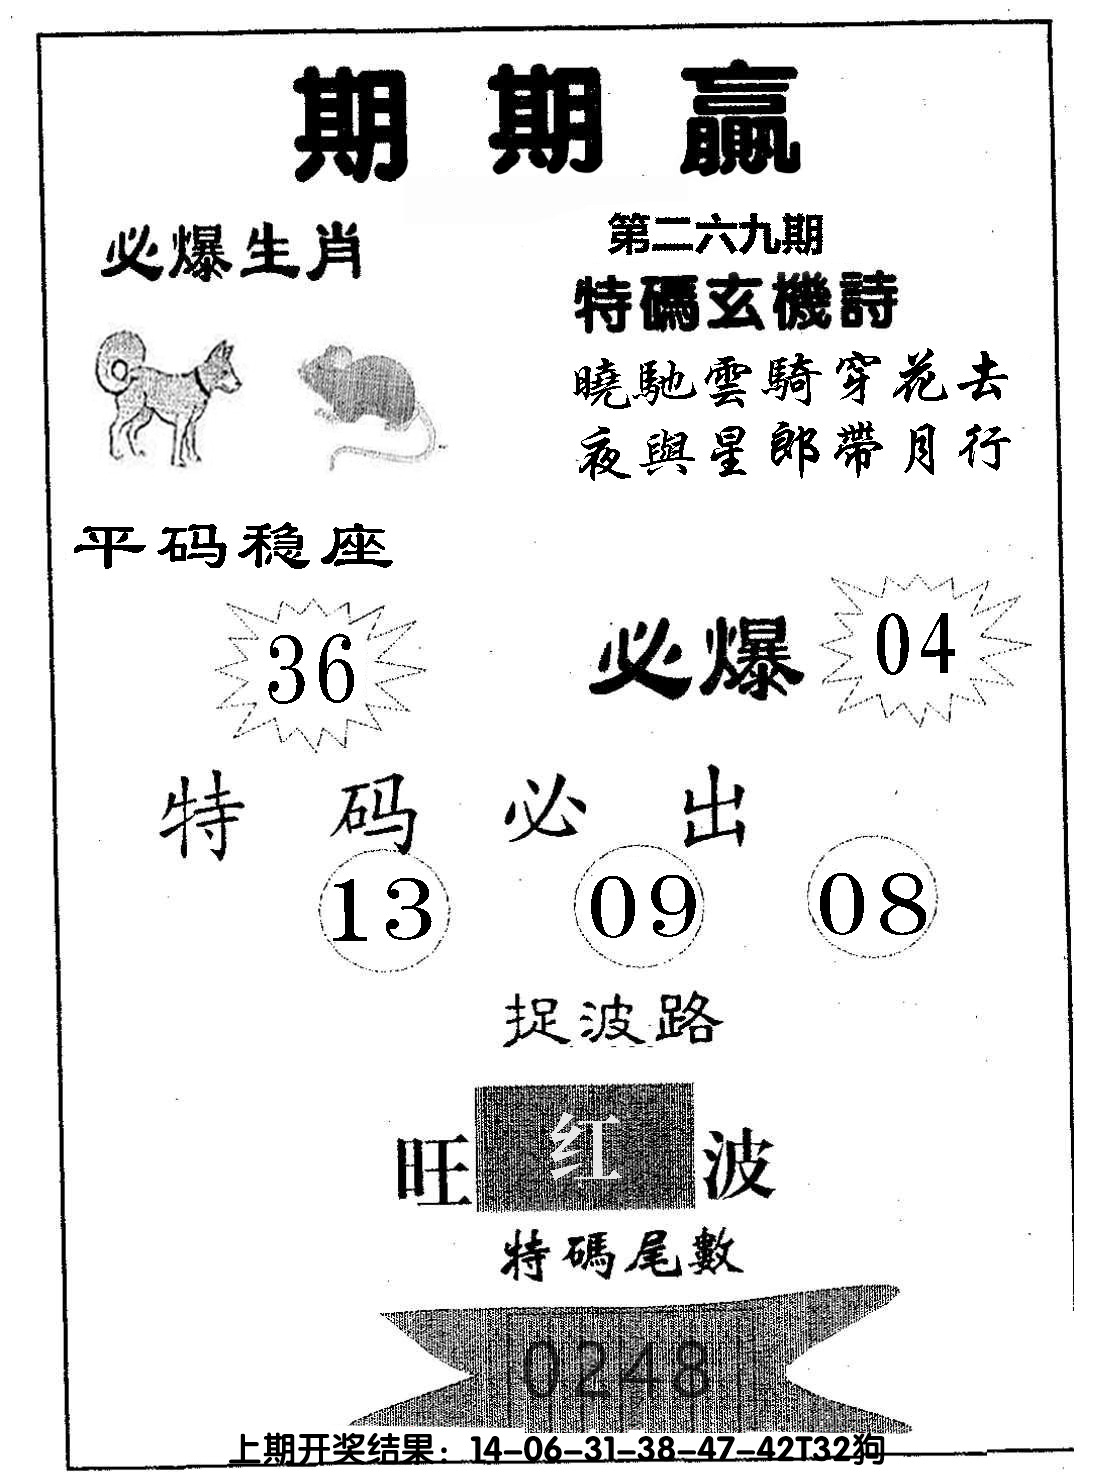 期期赢
必爆生肖
第二六九期
特碼玄機詩
曉馳雲騎穿花去
夜與星郎帶月行
平码稳座
36
必爆 04
特码必出
13 09 08
捉波路
旺红波
特碼尾數
0248
上期开奖结果：14-06-31-38-47-42T32狗